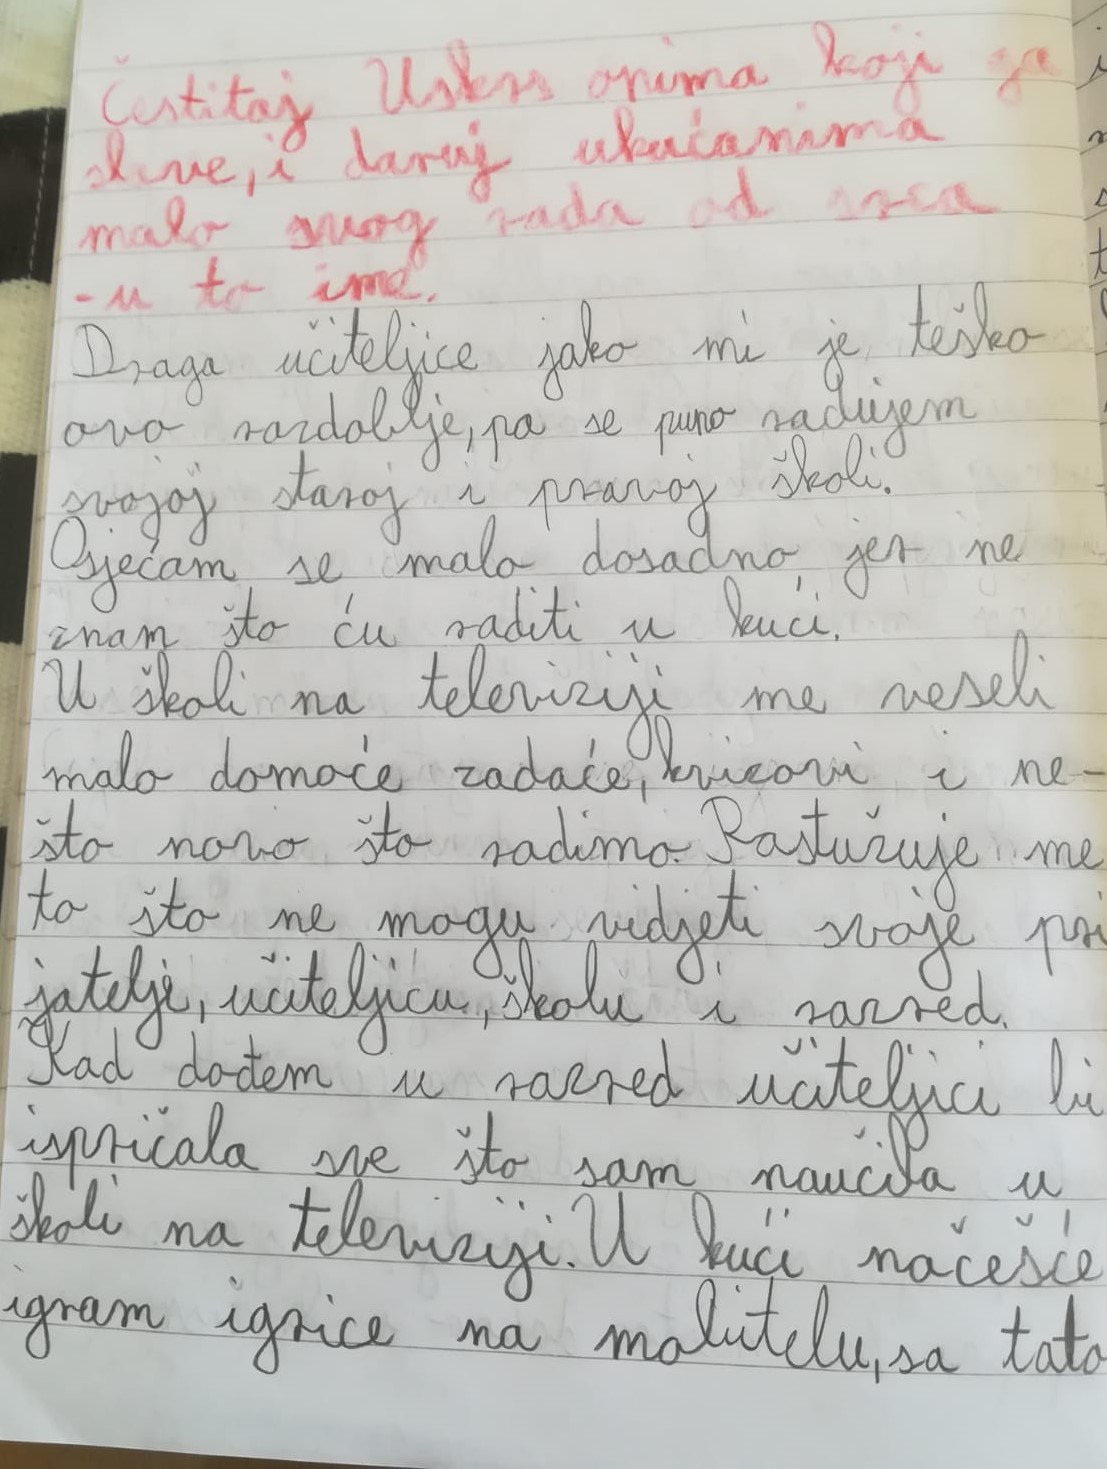 Čestitaj Uskrs onima koji ga
slave, i daruj ukućanima
malo svog rada od srca
- u to ime.
Draga učiteljice jako mi je teško
ovo razdoblje, pa se puno radujem
svojoj staroj i pravoj školi.
Osjećam se malo dosadno jer ne
znam što ću raditi u kući.
U školi na televiziji me veseli
malo domaće zadaće, kvizovi i ne-
što novo što radimo. Rastužuje me
to što ne mogu vidjeti svoje pri
jatelje, učiteljicu, školu i razred.
Kad dođem u razred učiteljici bi
ispričala sve što sam naučila u
školi na televiziji. U kući načešće
igram igrice na mobitelu, sa tato